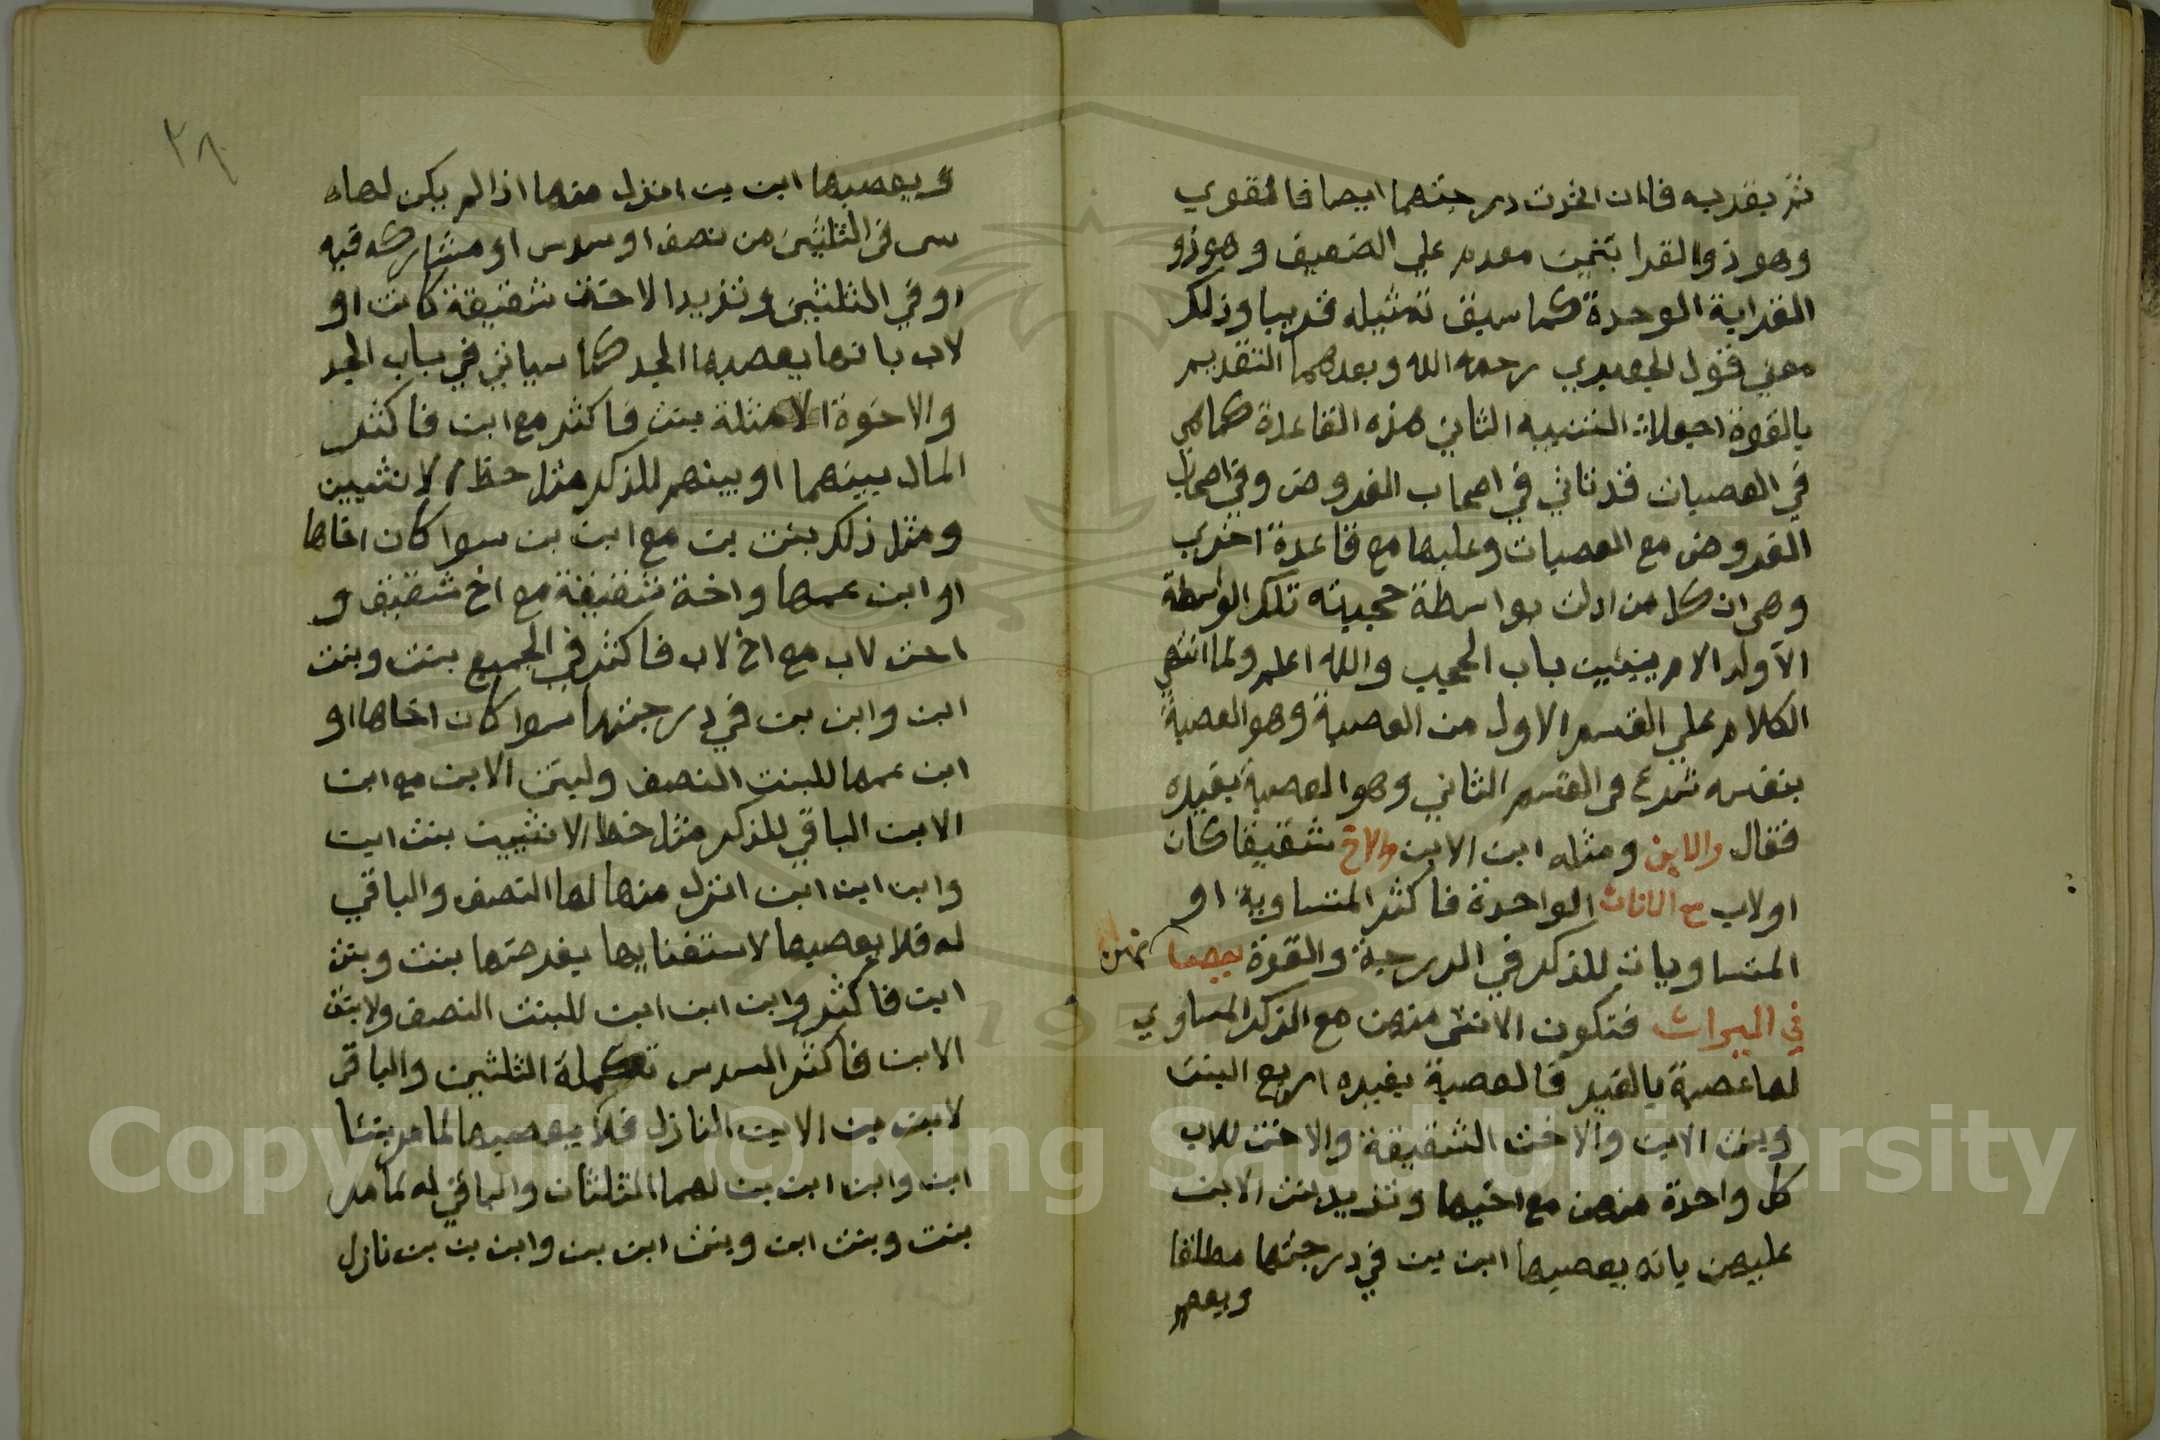 ثم بقربه فان اتحدت درجتهما ايضا فالقوي
وهو ذو القرابتين مقدم علي الضعيف وهو ذو
القرابة الوحدة كما سبق تمثيله قريبا وذلك
معني قول الجعبري رحمه الله وبعدهما التقديم
بالقوة اجعلا التنبيه الثاني هذه القاعدة كما هي
في العصبات قد تاتي في اصحاب الفروض وفي اصحاب
الفروض مع العصبات وعليها مع قاعدة اخري
وهي ان كل من ادلي بواسطة حجبته تلك الواسطة
الا ولد الام ينبني باب الحجب والله اعلم ولما انتهي
الكلام علي القسم الاول من العصبة وهو العصبة
بنفسه شرع في القسم الثاني وهو العصبة بغيره
فقال والابن ومثله ابن الابن والاخ شقيقا كان
او لاب مع الاناث الواحدة فاكثر المتساوية او
المتساويات للذكر في الدرجة والقوة يعصبانهن
في الميراث فتكون الانثى منهن مع الذكر المساوي
لها عصبة بالغير فالعصبة بغيره اربع البنت
وبنت الابن والاخت الشقيقة والاخت للاب
كل واحدة منهن مع اخيها وتزيد بنت الابن
عليهن بانه يعصبها ابن بن في درجتها مطلقا
ويعصبها
٢٨
ويعصبها ابن بن انزل منها اذا لم يكن لها
شي في الثلثين من نصف او سدس او مشاركه فيه
او في الثلثين وتزيد الاخت شقيقة كانت او
لاب بانها يعصبها الجد كما سياتي في باب الجد
والاخوة الامثلة بنت فاكثر مع ابن فاكثر
المال بينهما او بينهم للذكر مثل حظ الانثيين
ومثل ذلك بنت بن مع ابن بن سوا كان اخاها
او ابن عمها واخة شقيقة مع اخ شقيق و
اخت لاب مع اخ لاب فاكثر في الجميع بنت وبنت
ابن وابن بن في درجتها سوا كان اخاها او
ابن عمها للبنت النصف ولبنت الابن مع ابن
الابن الباقي للذكر مثل حظ الانثيين بنت ابن
وابن ابن ابن انزل منها لها النصف والباقي
له فلا يعصبها لاستغنايها بفرضها بنت وبنت
ابن فاكثر وابن ابن ابن للبنت النصف ولابنت
الابن فاكثر السدس تكملة الثلثين والباقي
لابن بن الابن النازل فلا يعصبها لما مر بنتا
ابن وابن ابن بن لهما الثلثان والباقي له لما مر
بنت وبنت ابن وبنت ابن بن وابن بن بن نازل
Copyright © King Saud University